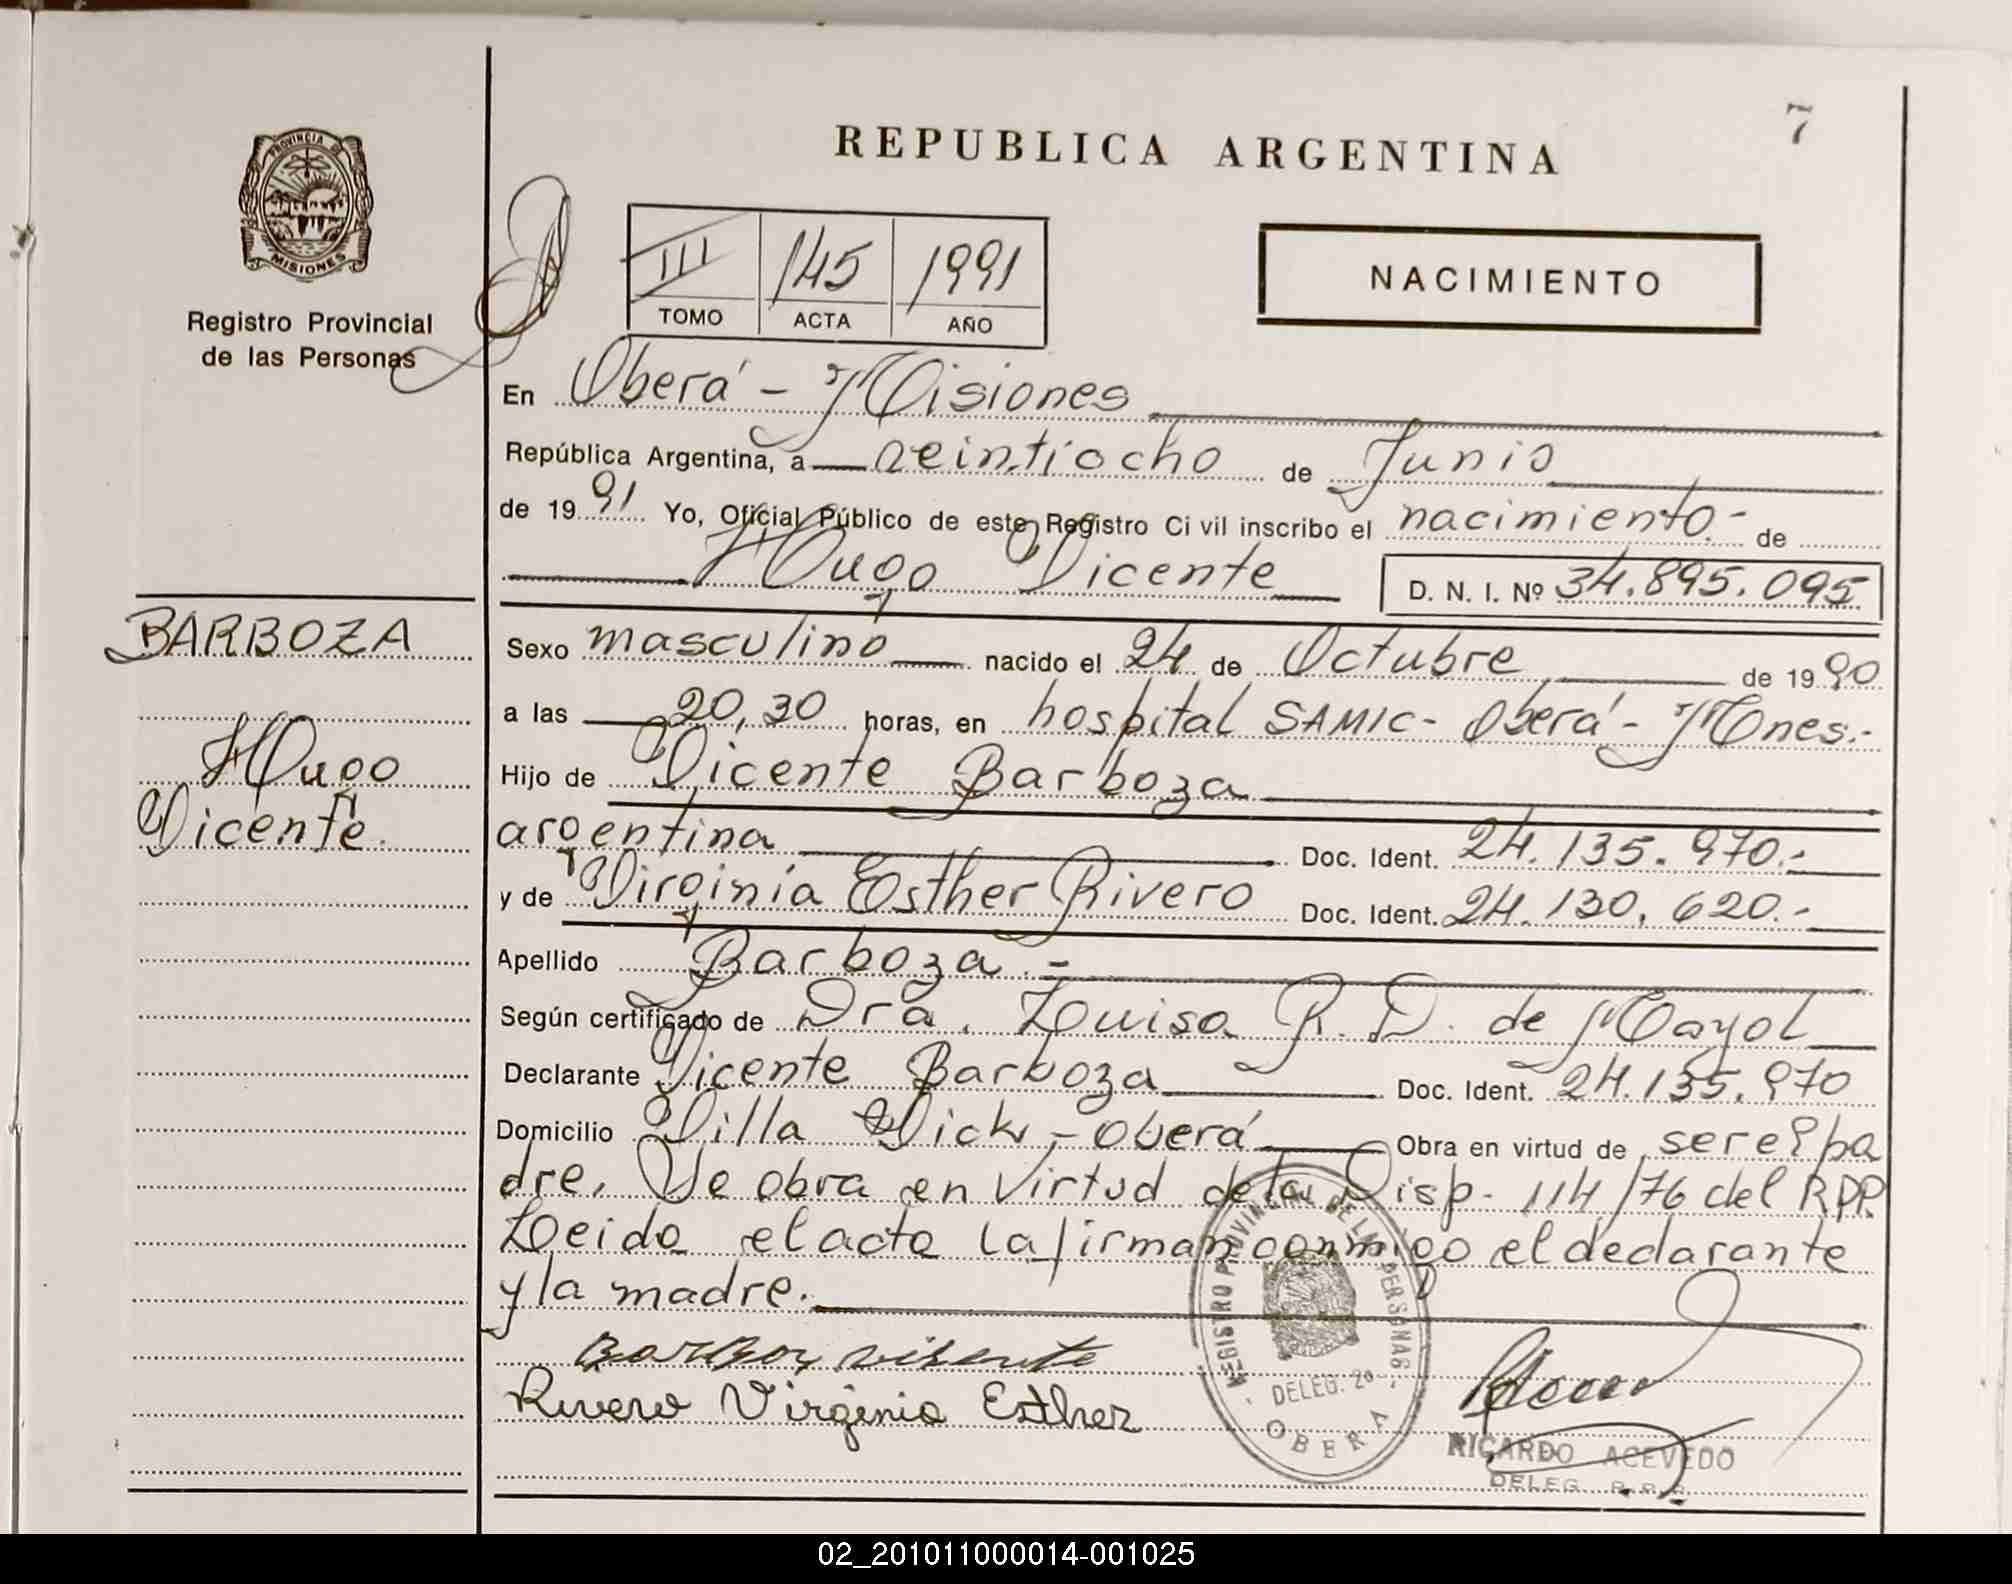 7
REPUBLICA ARGENTINA
PROVINCIA DE
MISIONES
Registro Provincial
de las Personas
III 145 1991
TOMO ACTA AÑO
NACIMIENTO
En Oberá - Misiones
República Argentina, a veintiocho de Junio
de 1991 Yo, Oficial Público de este Registro Civil inscribo el nacimiento.- de
Hugo Vicente D. N. I. Nº 34.895.095
BARBOZA
Hugo
Vicente.
Sexo masculino nacido el 24 de Octubre de 1990
a las 20,30 horas, en hospital SAMIC- Oberá - Mnes.-
Hijo de Vicente Barboza
argentina Doc. Ident. 24.135.970.-
y de Virginia Esther Rivero Doc. Ident. 24.130.620.-
Apellido Barboza.-
Según certificado de Dra. Luisa R. D. de Mayol
Declarante Vicente Barboza Doc. Ident. 24.135.970
Domicilio Villa - Oberá Obra en virtud de ser el pa
dre. Se obra en virtud de la Disp. 114/76 del RPP.
Leida el acta la firman conmigo el declarante
y la madre.
Barboza visente
Rivero Virginia Esther
REGISTRO PROVINCIAL DE LAS PERSONAS
DELEG. 2º
OBERA
RICARDO ACEVEDO
DELEG. R.P.P.
02_201011000014-001025